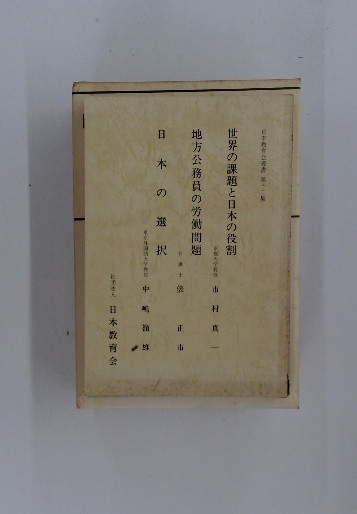 日本教育会叢書 第十一集
世界の課題と日本の役割
京都大学教授 市村真一
地方公務員の労働問題
弁護士 俵正市
日本の選択
東京外国語大学教授 中嶋嶺雄
社団法人 日本教育会